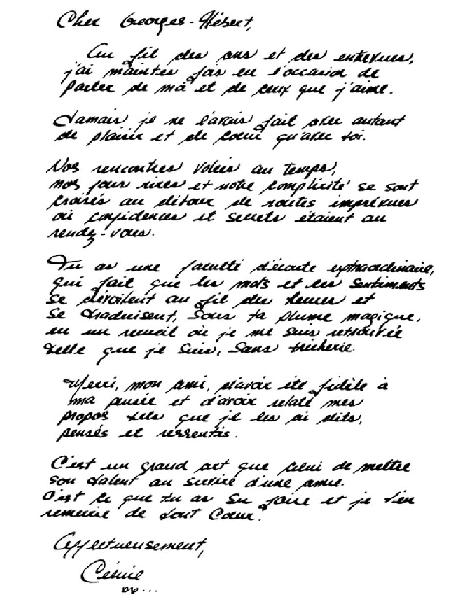 Cher Georges-Hébert,
Au fil des ans et des entrevues,
j'ai maintes fois eu l'occasion de
parler de moi et de ceux que j'aime.
Jamais je ne l'avais fait avec autant
de plaisir et de coeur qu'avec toi.
Nos rencontres volées au temps,
nos fous rires et notre complicité se sont
croisés au détour de routes imprévues
où confidences et secrets étaient au
rendez-vous.
Tu as une faculté d'écoute extraordinaire,
qui fait que les mots et les sentiments
se dévoilent au fil des heures et
se traduisent, sous ta plume magique,
en un recueil où je me suis retrouvée
telle que je suis, sans tricherie.
Merci, mon ami, d'avoir été fidèle à
ma pensée et d'avoir relaté mes
propos tels que je les ai dits,
pensés et ressentis.
C'est un grand art que celui de mettre
son talent au service d'une amie.
C'est ce que tu as su faire et je t'en
remercie de tout coeur.
Affectueusement,
Céline